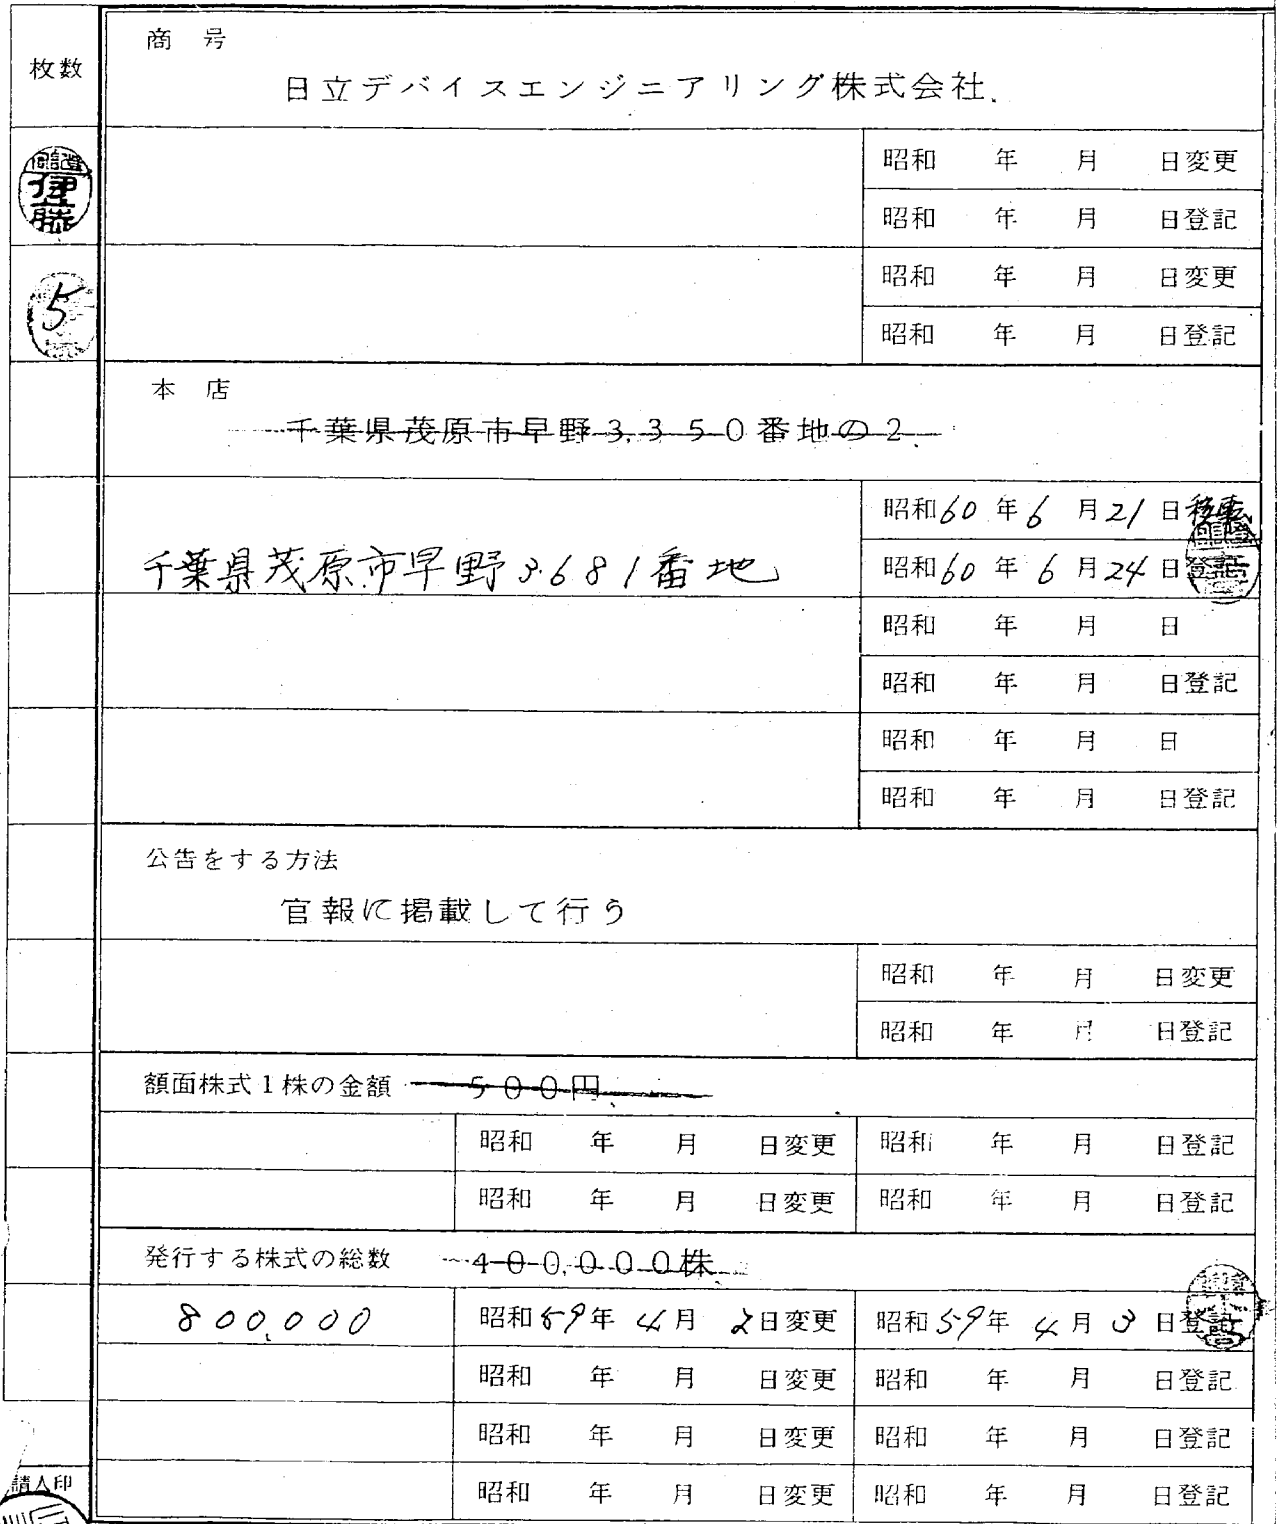 枚数
商号
日立デバイスエンジニアリング株式会社
伊藤
昭和 年 月 日変更
昭和 年 月 日登記
5
昭和 年 月 日変更
昭和 年 月 日登記
本店
千葉県茂原市早野3,350番地の2
千葉県茂原市早野3681番地
昭和60年6月21日移転
昭和60年6月24日登記
昭和 年 月 日
昭和 年 月 日登記
昭和 年 月 日
昭和 年 月 日登記
公告をする方法
官報に掲載して行う
昭和 年 月 日変更
昭和 年 月 日登記
額面株式1株の金額 500円
昭和 年 月 日変更 昭和 年 月 日登記
昭和 年 月 日変更 昭和 年 月 日登記
発行する株式の総数 400,000株
800,000 昭和59年4月2日変更 昭和59年4月3日登記
昭和 年 月 日変更 昭和 年 月 日登記
昭和 年 月 日変更 昭和 年 月 日登記
請人印
昭和 年 月 日変更 昭和 年 月 日登記